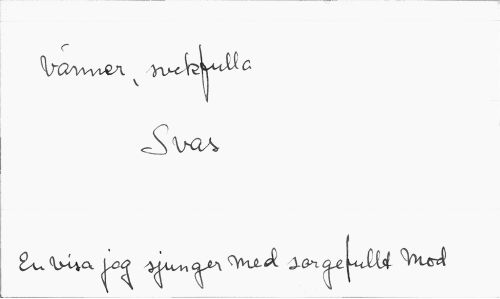 Vänner, svekfulla
Svas
En visa jag sjunger med sorgefullt mod